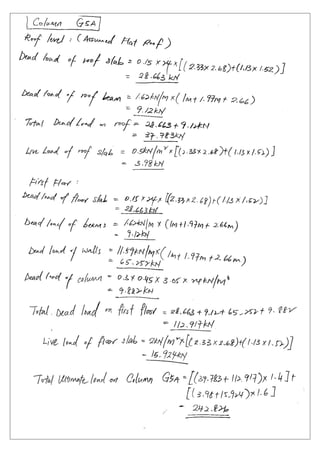 Column G5A
Roof level : (Assumed Flat Roof)
Dead load of roof slab = 0.15 x 24 x [(2.33 x 2.68)+(1.13 x 1.52)]
= 28.663 kN
Dead load of roof beam = 1.62 kN/m x ( 1m + 1.97m + 2.66)
= 9.12 kN
Total Dead Load on roof = 28.663 + 9.12 kN
= 37.783 kN
Live Load of roof slab = 0.5 kN/m² x [(2.33 x 2.68)+(1.13 x 1.52)]
= 3.98 kN
First Floor :
Dead load of floor slab = 0.15 x 24 x [(2.33 x 2.68)+(1.13 x 1.52)]
= 28.663 kN
Dead load of beams = 1.62 kN/m x (1m + 1.97m + 2.66m)
= 9.12 kN
Dead load of walls = 11.59 kN/m x ( 1m + 1.97m + 2.66m)
= 65.252 kN
Dead load of column = 0.3 x 0.45 x 3.05 x 24 kN/m³
= 9.882 kN
Total Dead load on first floor = 28.663 + 9.12 + 65.252 + 9.882
= 112.917 kN
Live load of floor slab = 2 kN/m² x [(2.33 x 2.68)+(1.13 x 1.52)]
= 15.924 kN
Total Ultimate load on Column G5A = [(39.783 + 112.917) x 1.4] +
[(3.98 + 15.924) x 1.6]
= 242.826